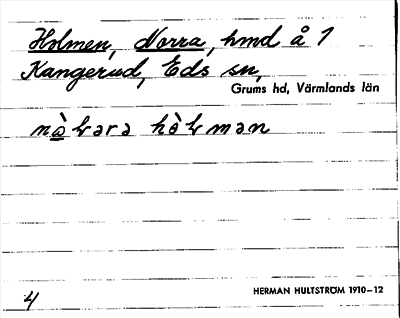 Holmen, Norra, hmd å 1
Kangerud, Eds sn,
Grums hd, Värmlands län
HERMAN HULTSTRÖM 1910–12
4